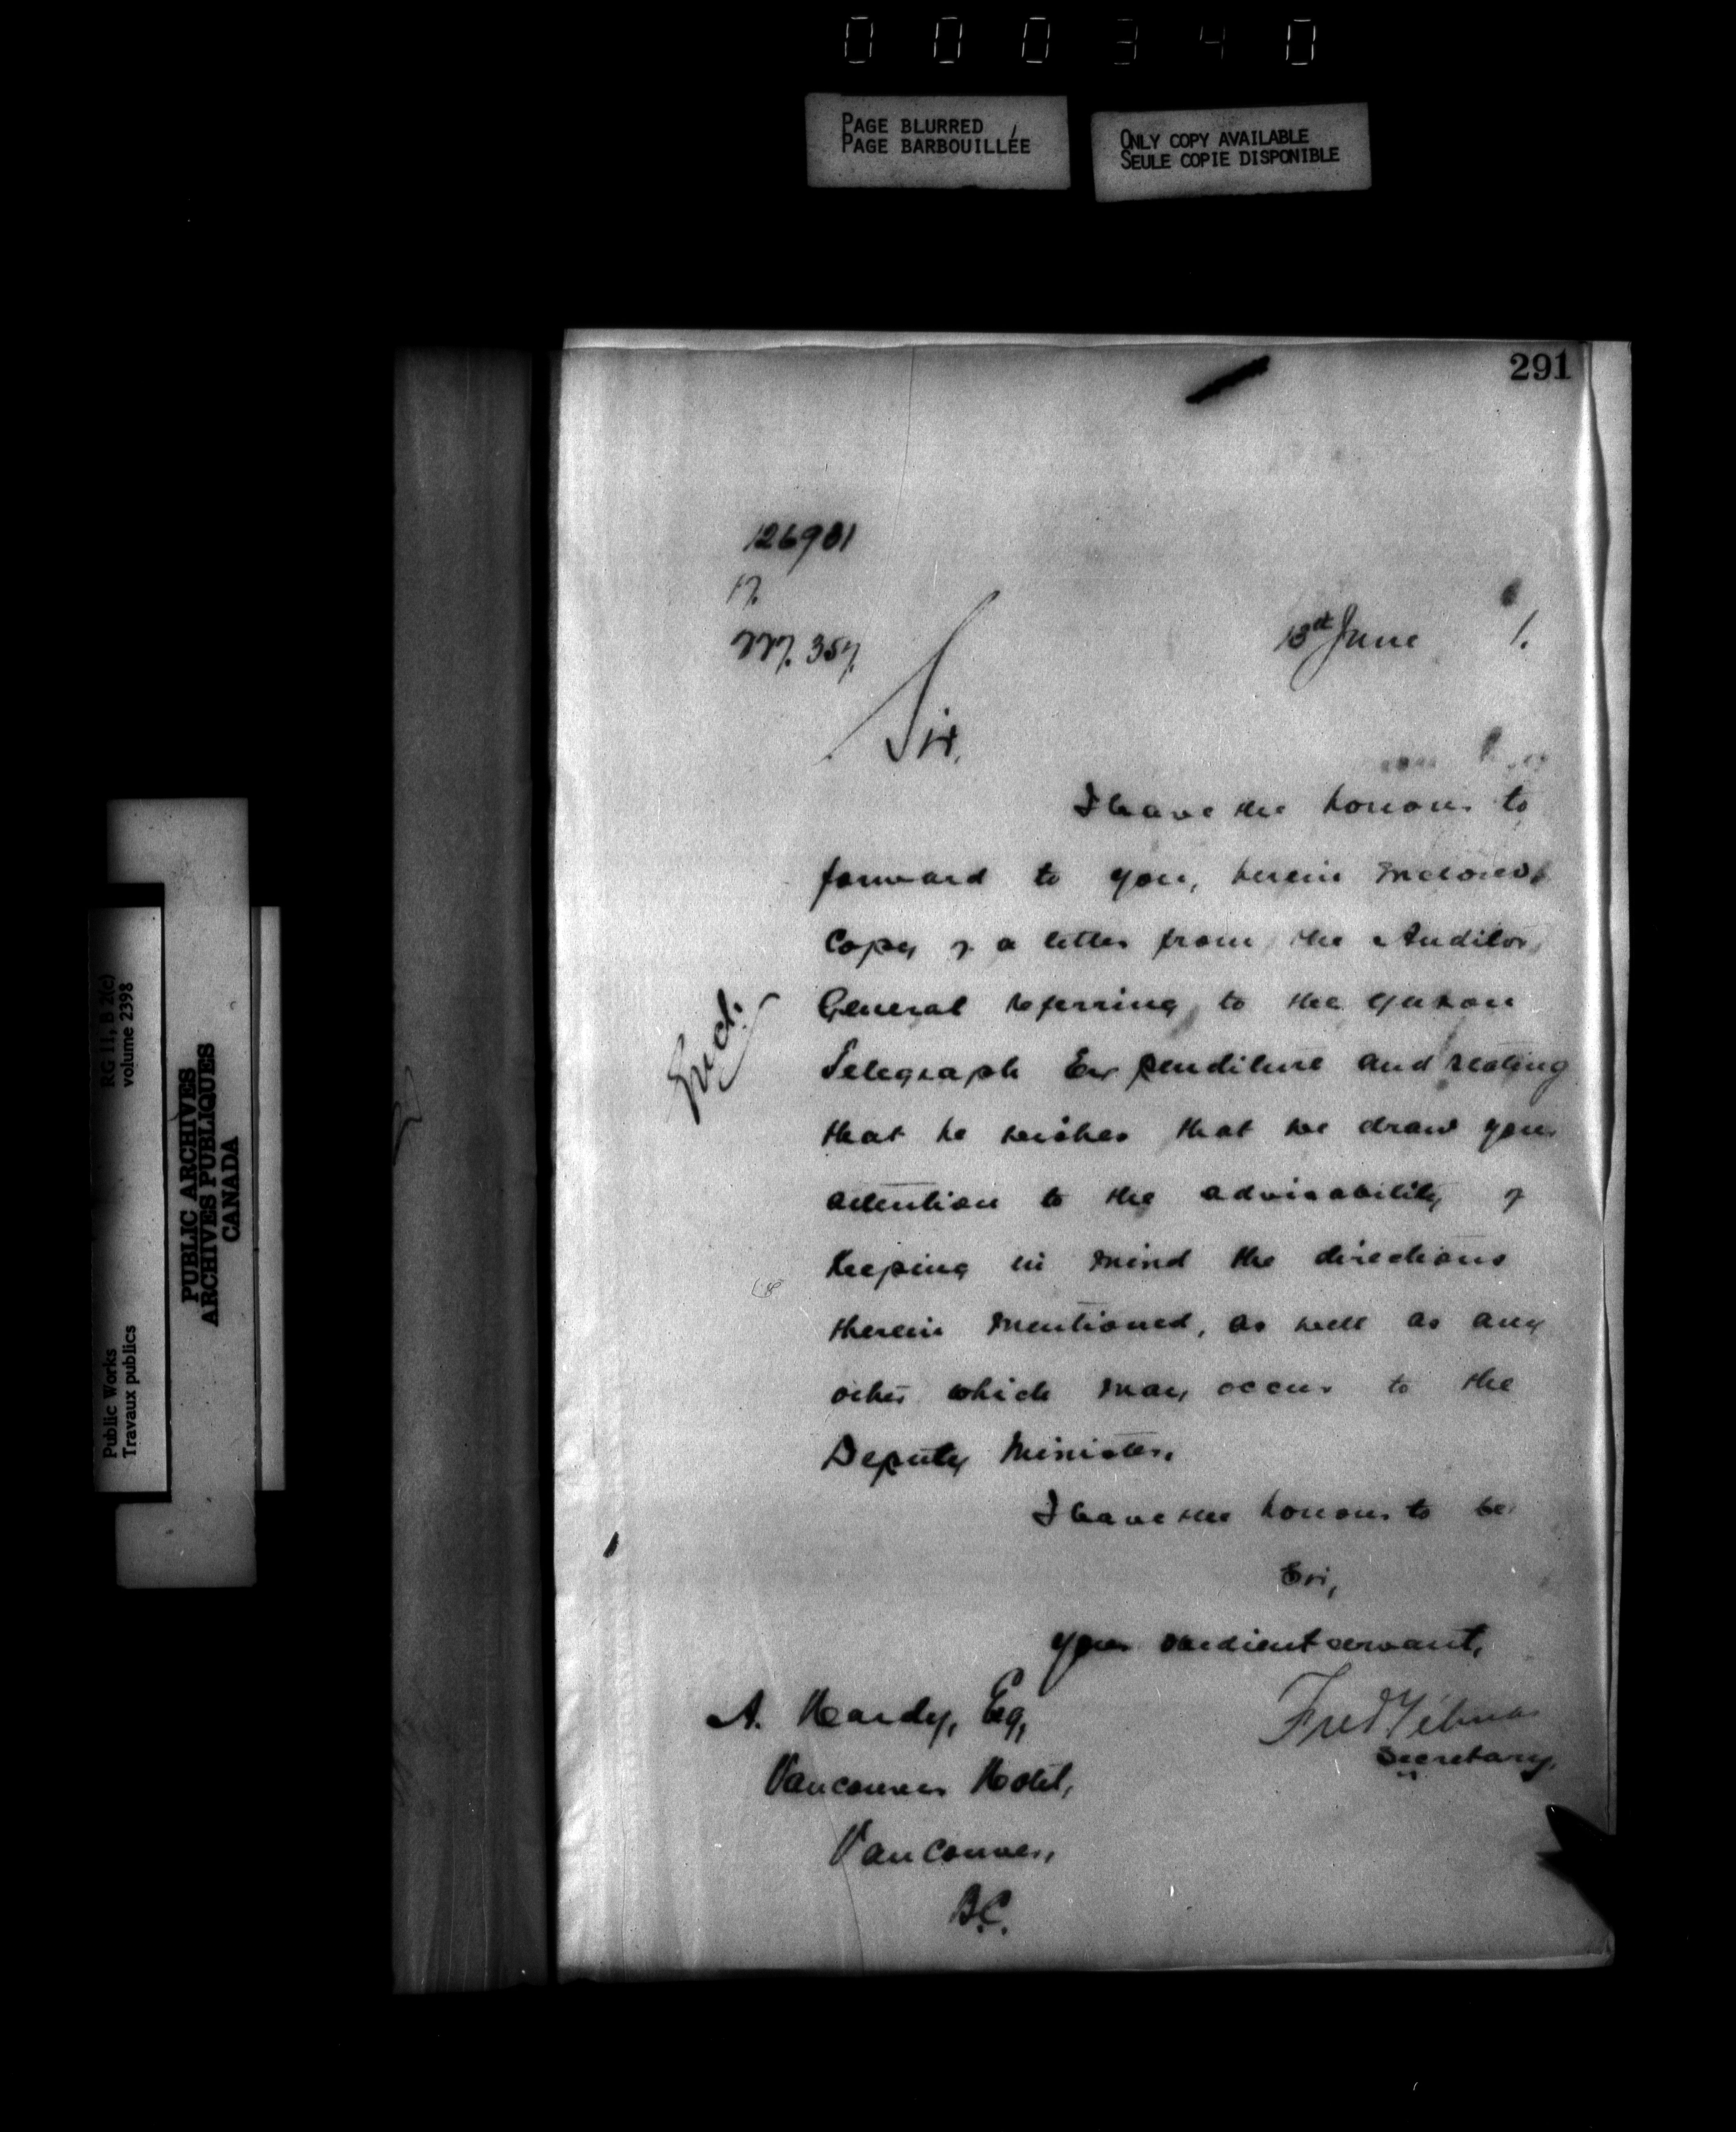 0 0 0 3 4 0
PAGE BLURRED
PAGE BARBOUILLÉE
ONLY COPY AVAILABLE
SEULE COPIE DISPONIBLE
291
126901
17.
227. 357.
13th June 1.
Sir,
I have the honour to
forward to you, herein inclosed,
Copy of a letter from the Auditor
General referring to the Yukon
Telegraph Expenditure and stating
that he wishes that we draw your
attention to the advisability of
keeping in mind the directions
therein mentioned, as well as any
other which may occur to the
Deputy Minister.
Incl.
I have the honour to be
Sir,
your obedient servant,
Fred Gélinas
Secretary.
A. Hardy, Esq,
Vancouver Hotel,
Vancouver,
B.C.
RG 11, B 2(c)
volume 2398
Public Works
Travaux publics
PUBLIC ARCHIVES
ARCHIVES PUBLIQUES
CANADA